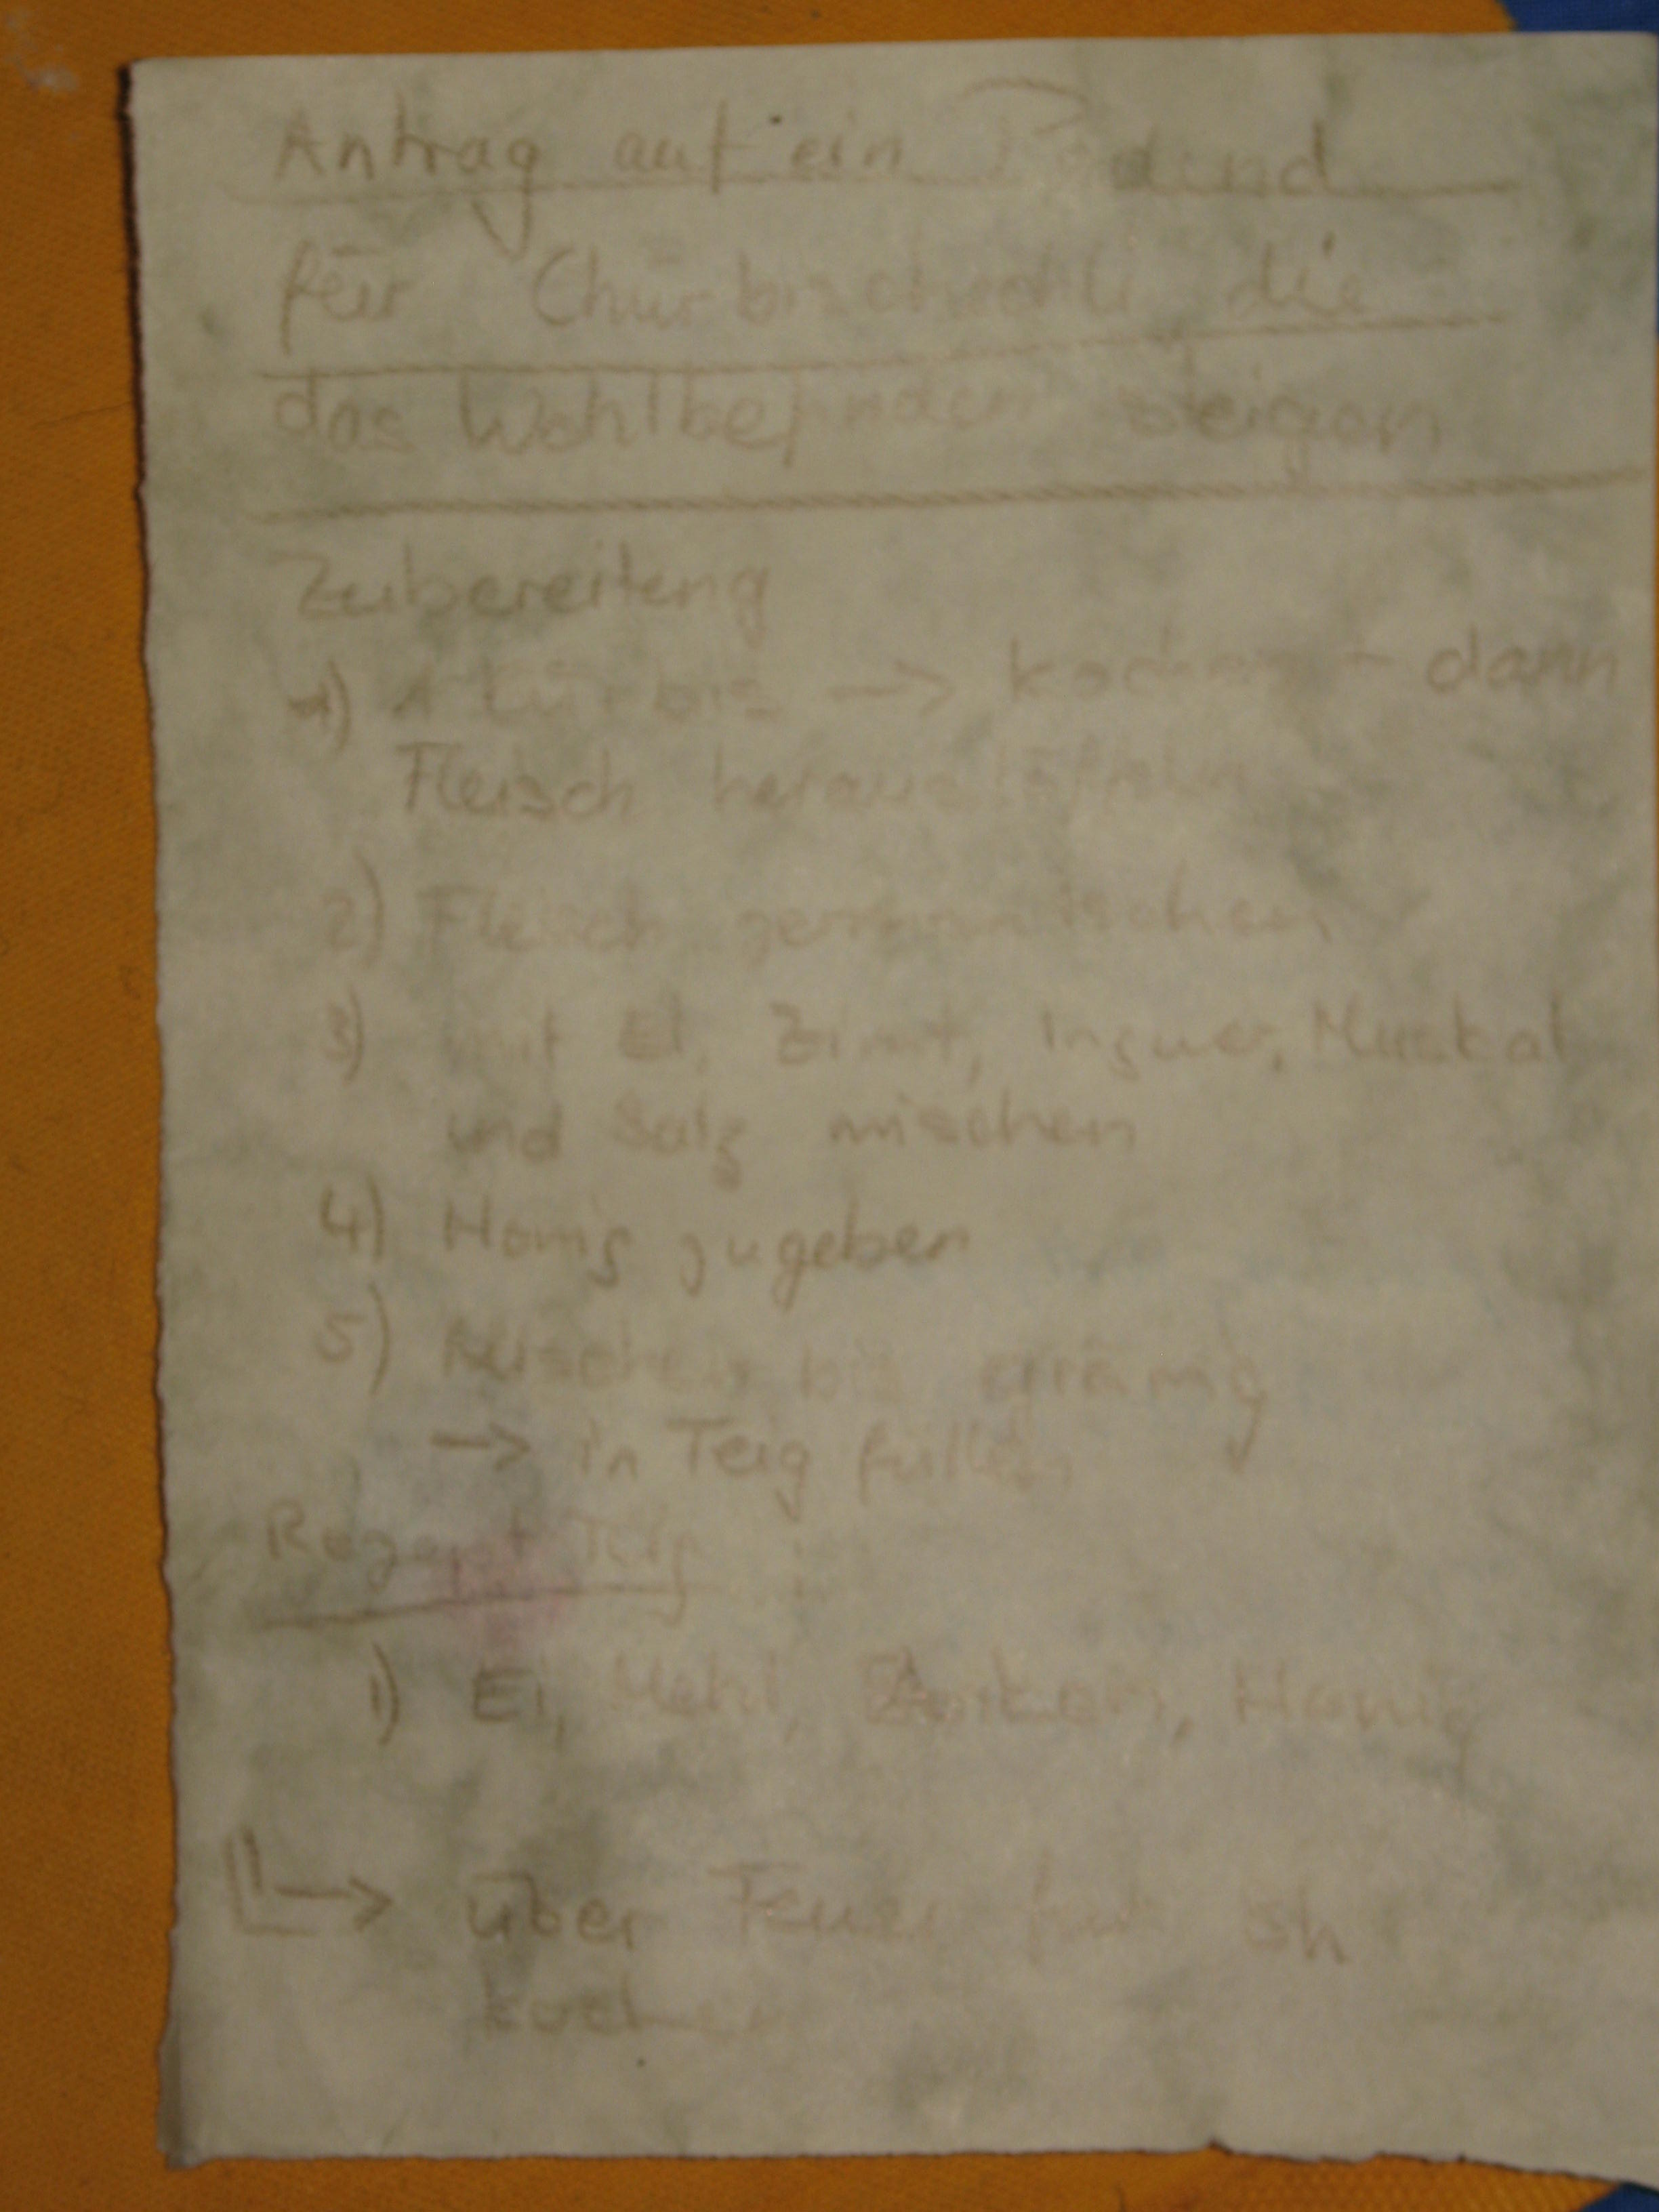 Antrag auf ein
für die
das Wohlbefinden steigern
Zubereitung
1) 1 Kürbis → kochen + dann
Fleisch herauslöffeln
2) Fleisch
3) mit Ei, Zimt, Ingwer, Muskat
und Salz mischen
4) Honig zugeben
5) Mischen bis cremig
→ in Teig füllen
Rezept Teig
1) Ei, Mehl, Honig
über Feuer für